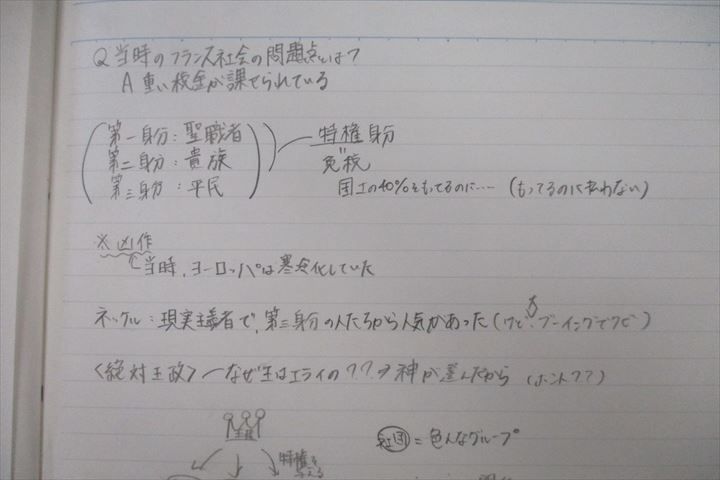 Q 当時のフランス社会の問題点とは?
A 重い税金が課せられている
第一身分:聖職者
第二身分:貴族
第三身分:平民
特権身分
免税
国土の40%ももってるのに…… (もってるのに払わない)
※凶作
当時、ヨーロッパは寒冷化していた
ネッケル:現実主義者で、第三身分の人たちから人気があった(クビ
ブーイングでクビ)
〈絶対王政〉―なぜ王はエライの??→神が選んだから (ホント??)
王様
特権を
与える
社団=色んなグループ